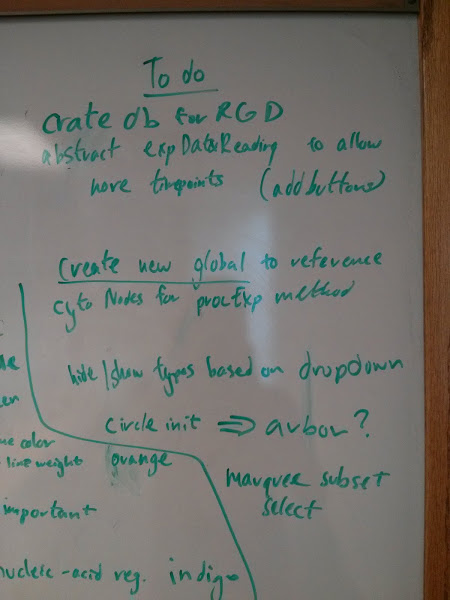 To do
crate db for RGD
abstract expData&Reading to allow
more timepoints (addbuttons)
Create new global to reference
cyto Nodes for procExp method
hide/show types based on dropdown
circle init => arbor?
orange
color
line weight
marquee subset
select
important
nucleic-acid reg. indigo